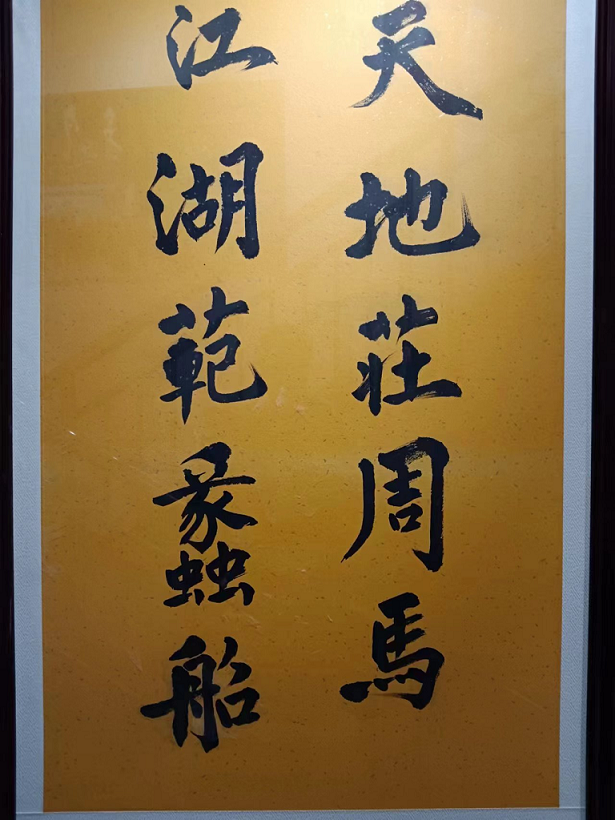 天地莊周馬
江湖範蠡船